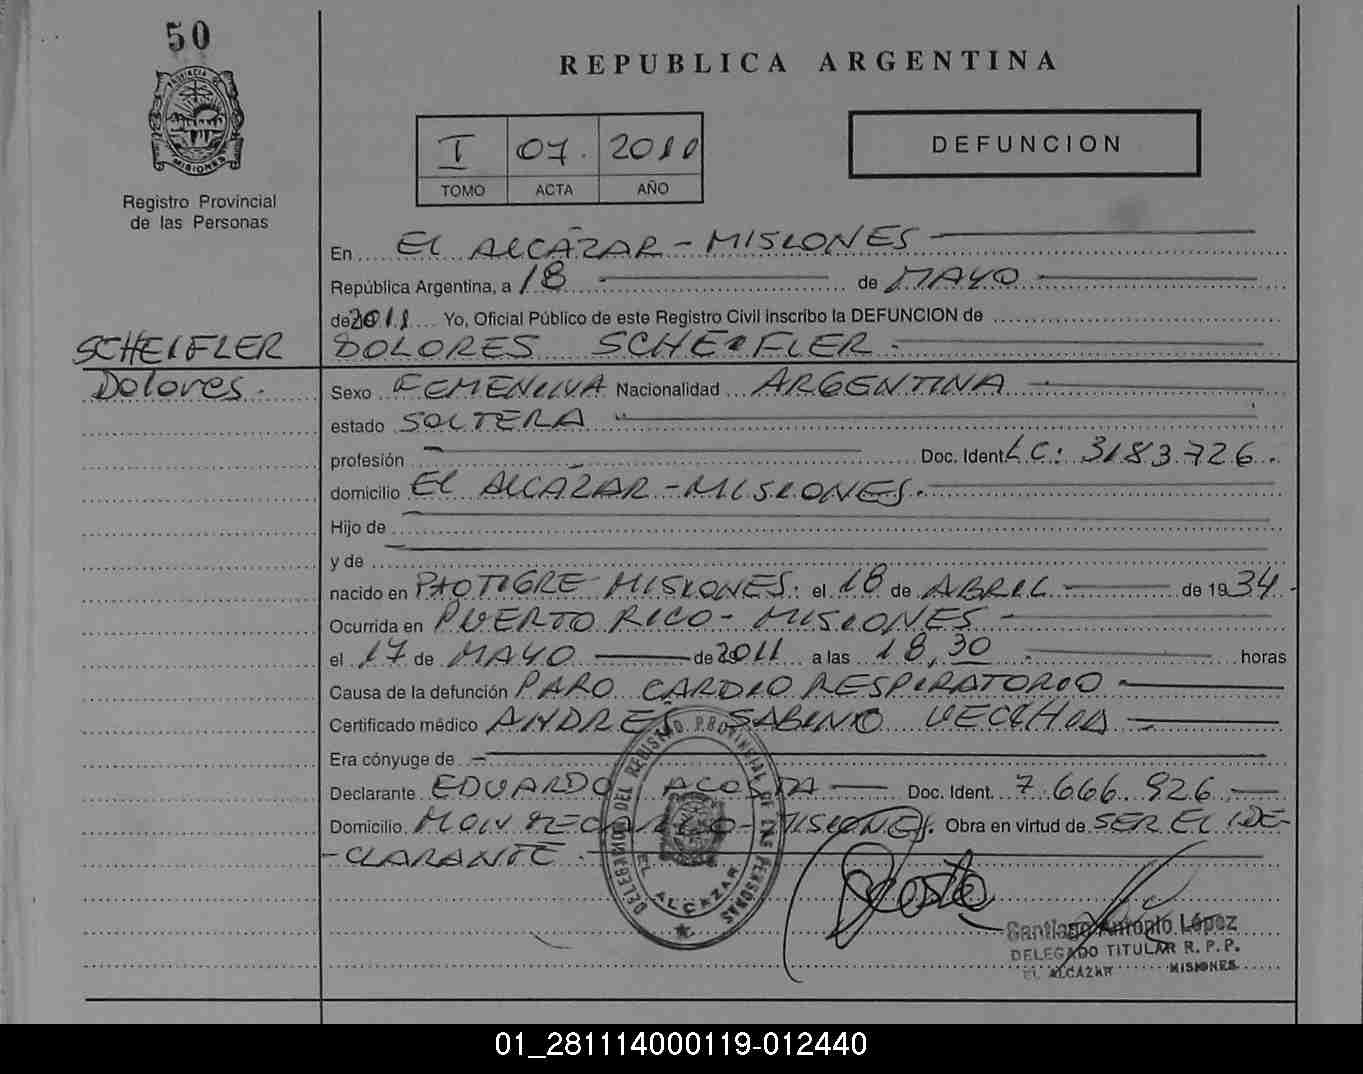 50
REPUBLICA ARGENTINA
PROVINCIA DE MISIONES
Registro Provincial
de las Personas
I 07. 2011
TOMO ACTA AÑO
DEFUNCION
En EL ALCÁZAR - MISIONES
República Argentina, a 18 de MAYO
de 2011 Yo, Oficial Público de este Registro Civil inscribo la DEFUNCION de
SCHEIFLER DOLORES SCHEIFLER -
Dolores.
Sexo FEMENINA Nacionalidad ARGENTINA
estado SOLTERA
profesión Doc. Ident. LC: 3183.726.
domicilio EL ALCÁZAR - MISIONES.
Hijo de
y de
nacido en MISIONES. el 18 de ABRIL de 1934.-
Ocurrida en PUERTO RICO - MISIONES
el 17 de MAYO de 2011 a las 18,30 horas
Causa de la defunción PARO CARDIO RESPIRATORIO
Certificado médico ANDRES SABINO
Era cónyuge de
Declarante EDUARDO ACOSTA Doc. Ident. 7.666.926
Domicilio MONTECARLO - MISIONES. Obra en virtud de SER EL DE-
-CLARANTE.
DELEGACION DEL REGISTRO PROVINCIAL DE LAS PERSONAS
EL ALCAZAR
Acosta
Santiago Antonio López
DELEGADO TITULAR R. P. P.
EL ALCAZAR MISIONES
01_281114000119-012440